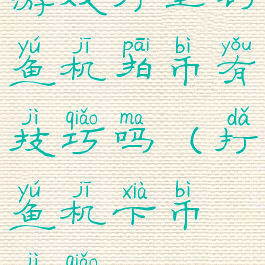 yú jī pāi bì yǒu
鱼机拍币有
jì qiǎo ma dǎ
技巧吗（打
yú jī xià bì
鱼机下币
jì qiǎo